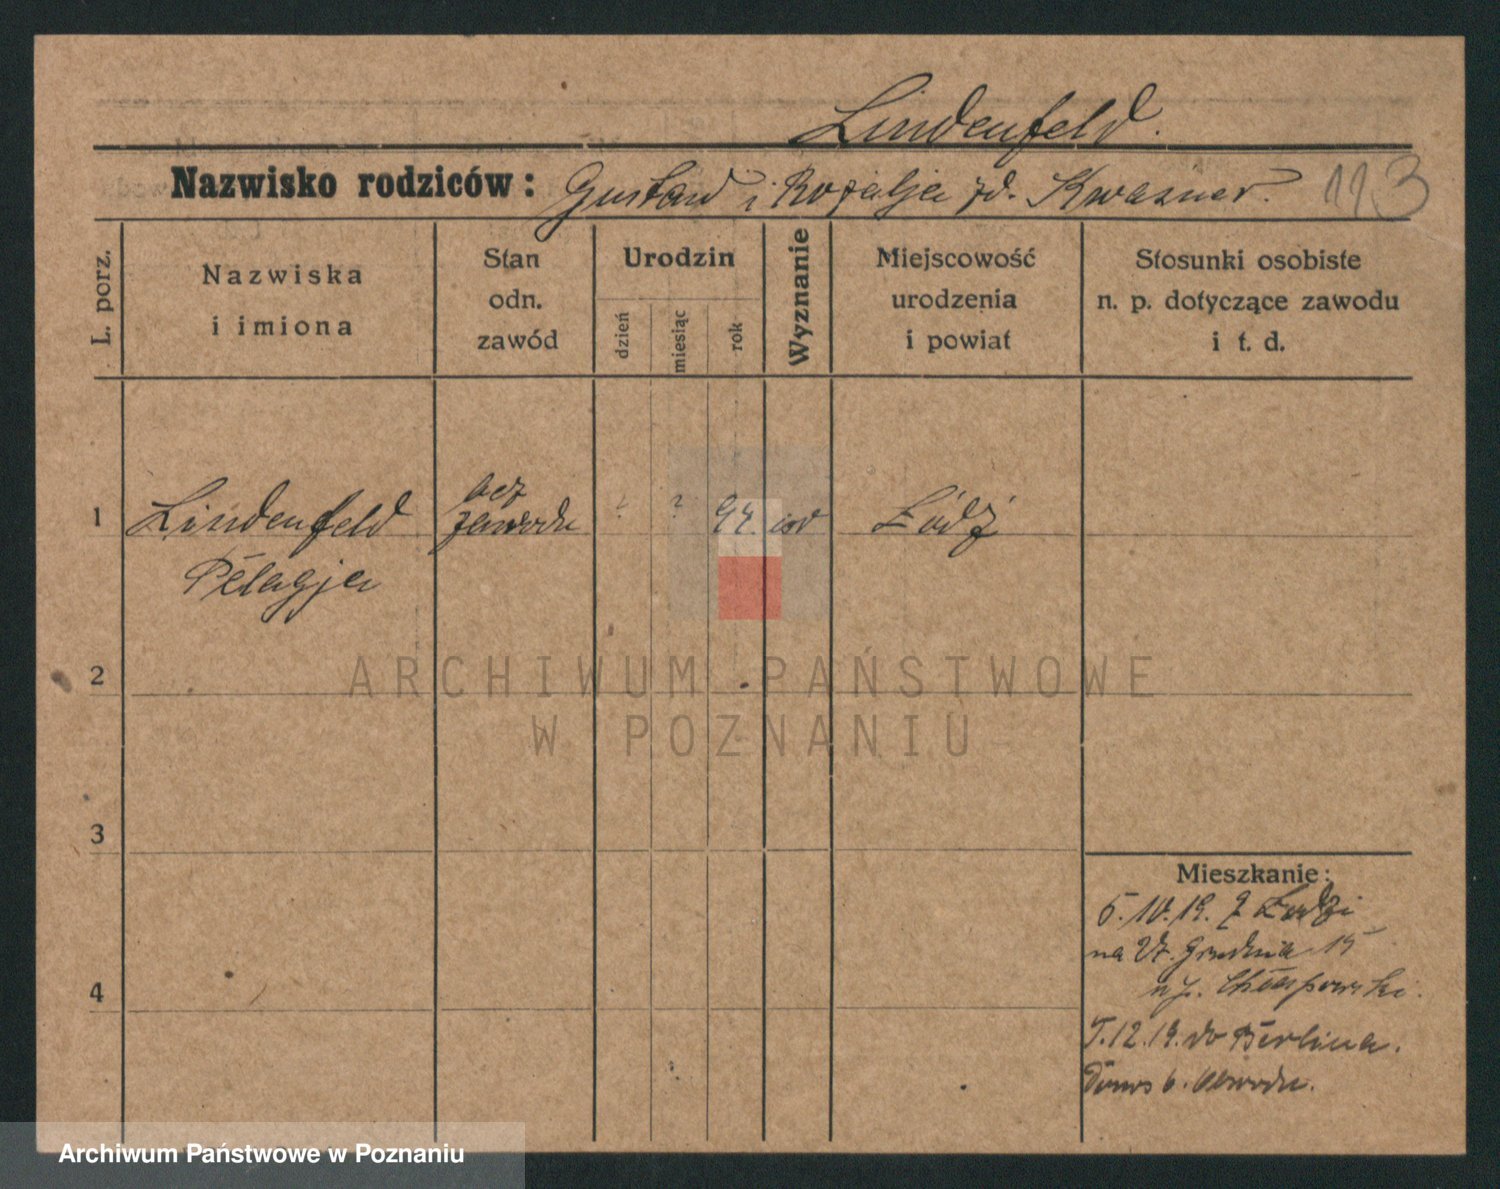 Lindenfeld.
Nazwisko rodziców: Gustaw i Rozalja zd. Kwasner. 113
L. porz.
Nazwiska i imiona
Stan odn. zawód
Urodzin
dzień
miesiąc
rok
Wyznanie
Miejscowość urodzenia i powiat
Stosunki osobiste n. p. dotyczące zawodu i t. d.
1 Lindenfeld Pelagja
bez zawodu
? ? 94. izr
Łódź
2
3
4
Mieszkanie:
5. 10. 19. z Łodzi
na 27. Grudnia 15
u p. Chłapowski.
5. 12. 19. do Berlina.
6. Obwodu.
ARCHIWUM PAŃSTWOWE
W POZNANIU
Archiwum Państwowe w Poznaniu